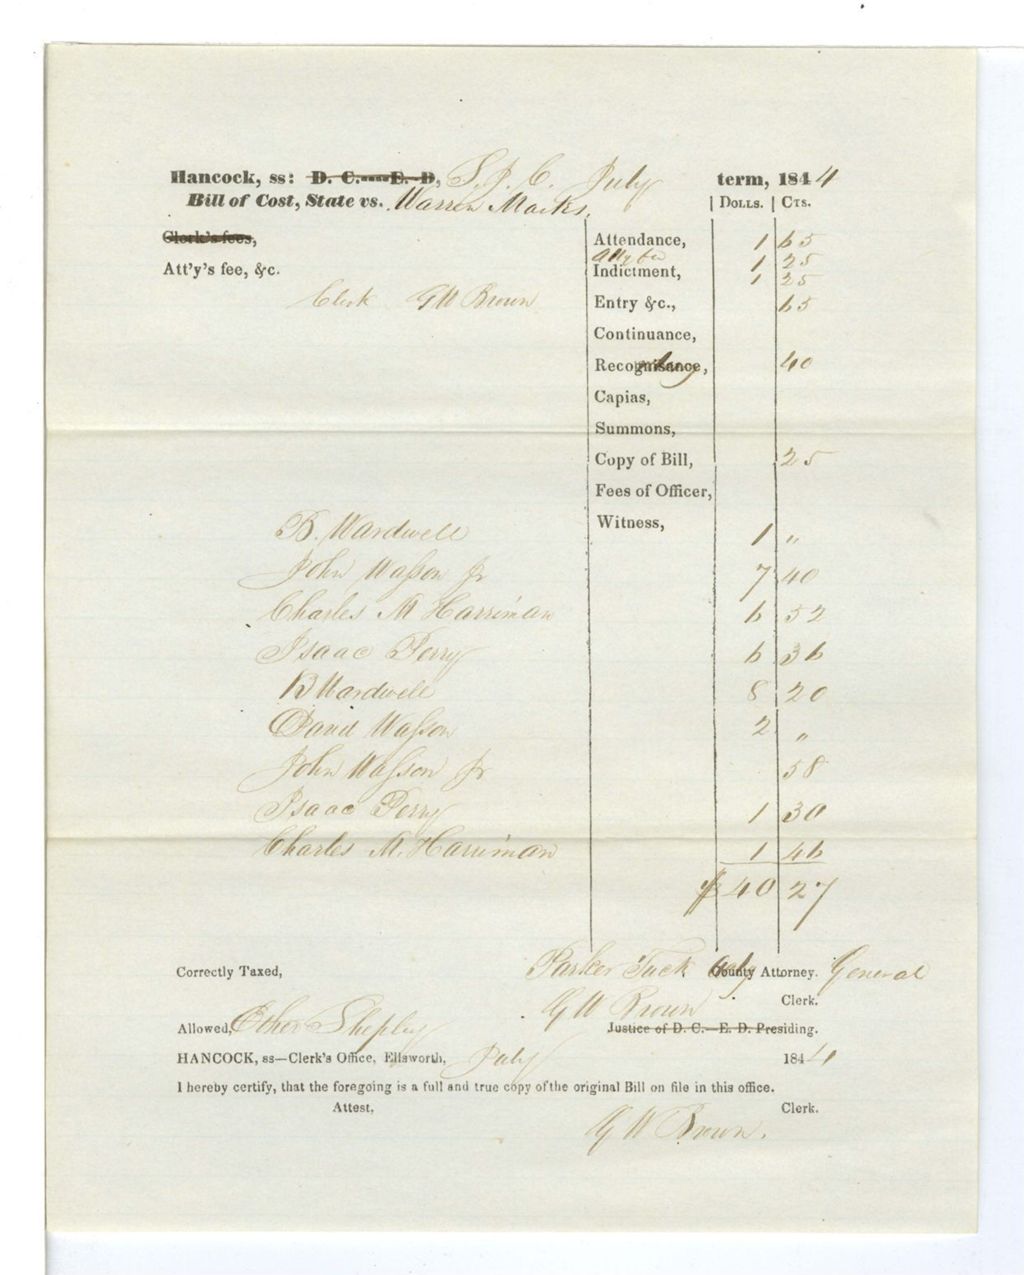 Hancock, ss: D. C.----E. D, S. J. C. July term, 1844
Bill of Cost, State vs. Warren Marks. | Dolls. | Cts.
Clerk's fees, Attendance, 1 65
Atty fee 1 25
Att'y's fee, &c. Indictment, 1 25
Clerk G W Brown Entry &c., 65
Continuance,
Recognisance, 40
Capias,
Summons,
Copy of Bill, 25
Fees of Officer,
Witness,
B. Wardwell 1 "
John Wasson Jr 7 40
Charles M Harriman 6 52
Isaac Perry 6 36
B Wardwell 8 20
David Wasson 2 "
John Wasson Jr 58
Isaac Perry 1 30
Charles M. Harriman 1 46
$ 40 27
Correctly Taxed, Parker Tuck County Attorney. General
G W Brown Clerk.
Allowed, Ether Shepley Justice of D. C.—E. D. Presiding.
HANCOCK, ss—Clerk's Office, Ellsworth, July 1844
I hereby certify, that the foregoing is a full and true copy of the original Bill on file in this office.
Attest, Clerk.
G W Brown.